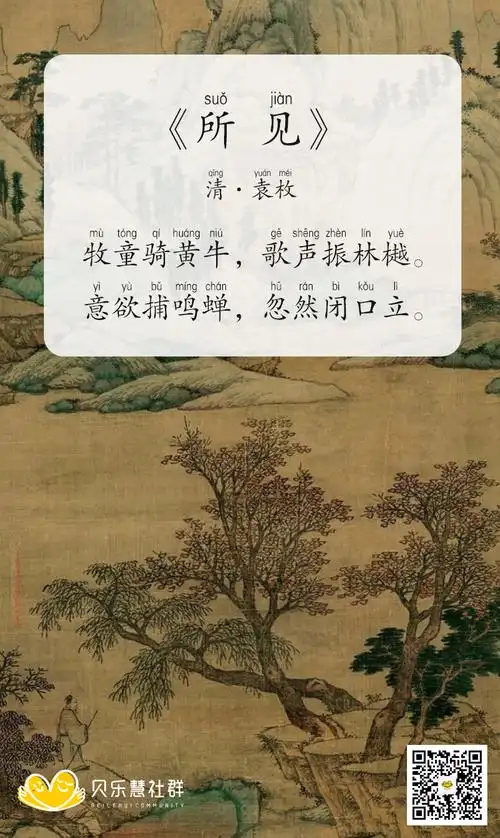 suǒ jiàn
《所见》
qīng yuán méi
清·袁枚
mù tóng qí huáng niú gē shēng zhèn lín yuè
牧童骑黄牛，歌声振林樾。
yì yù bǔ míng chán hū rán bì kǒu lì
意欲捕鸣蝉，忽然闭口立。
贝乐慧社群
BEILEHUI COMMUNITY